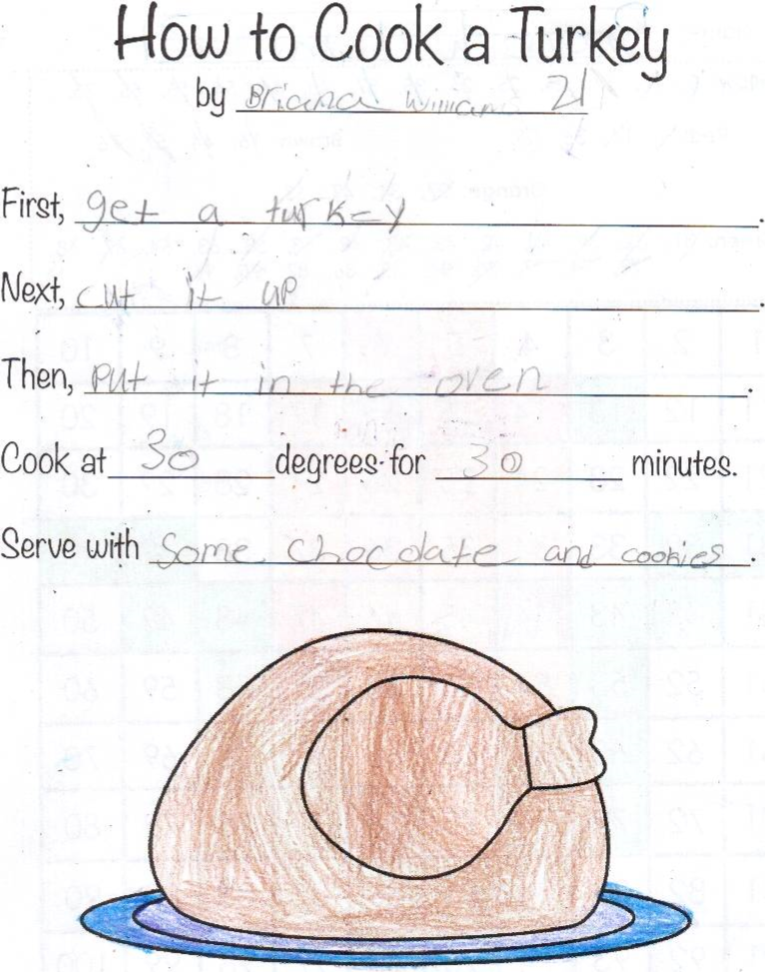 How to Cook a Turkey
by Briana 21
First, get a turkey.
Next, cut it up.
Then, put it in the oven.
Cook at 30 degrees for 30 minutes.
Serve with Some Chocolate and cookies.